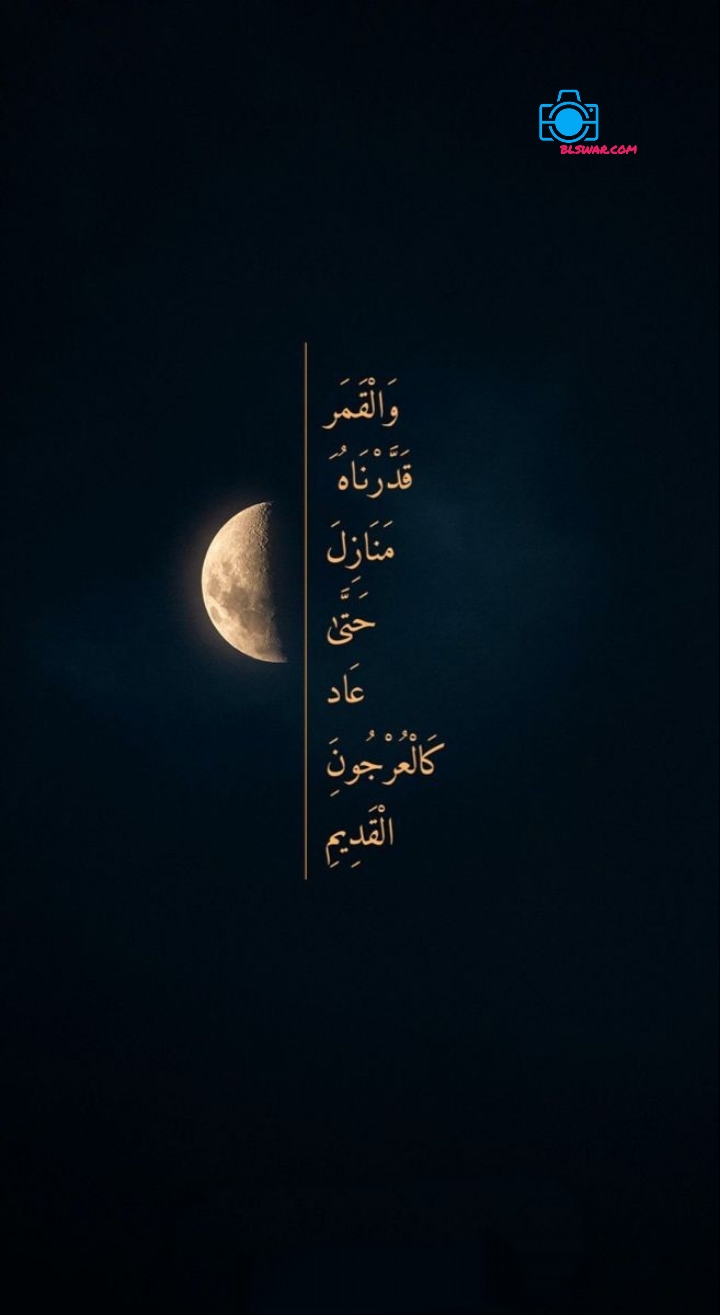 BLSWAR.COM
وَالْقَمَر
قَدَّرْنَاهُ َ
مَنَازِلَ
حَتَّىٰ
عَاد
كَالْعُرْجُونَِ
الْقَدِيمِ